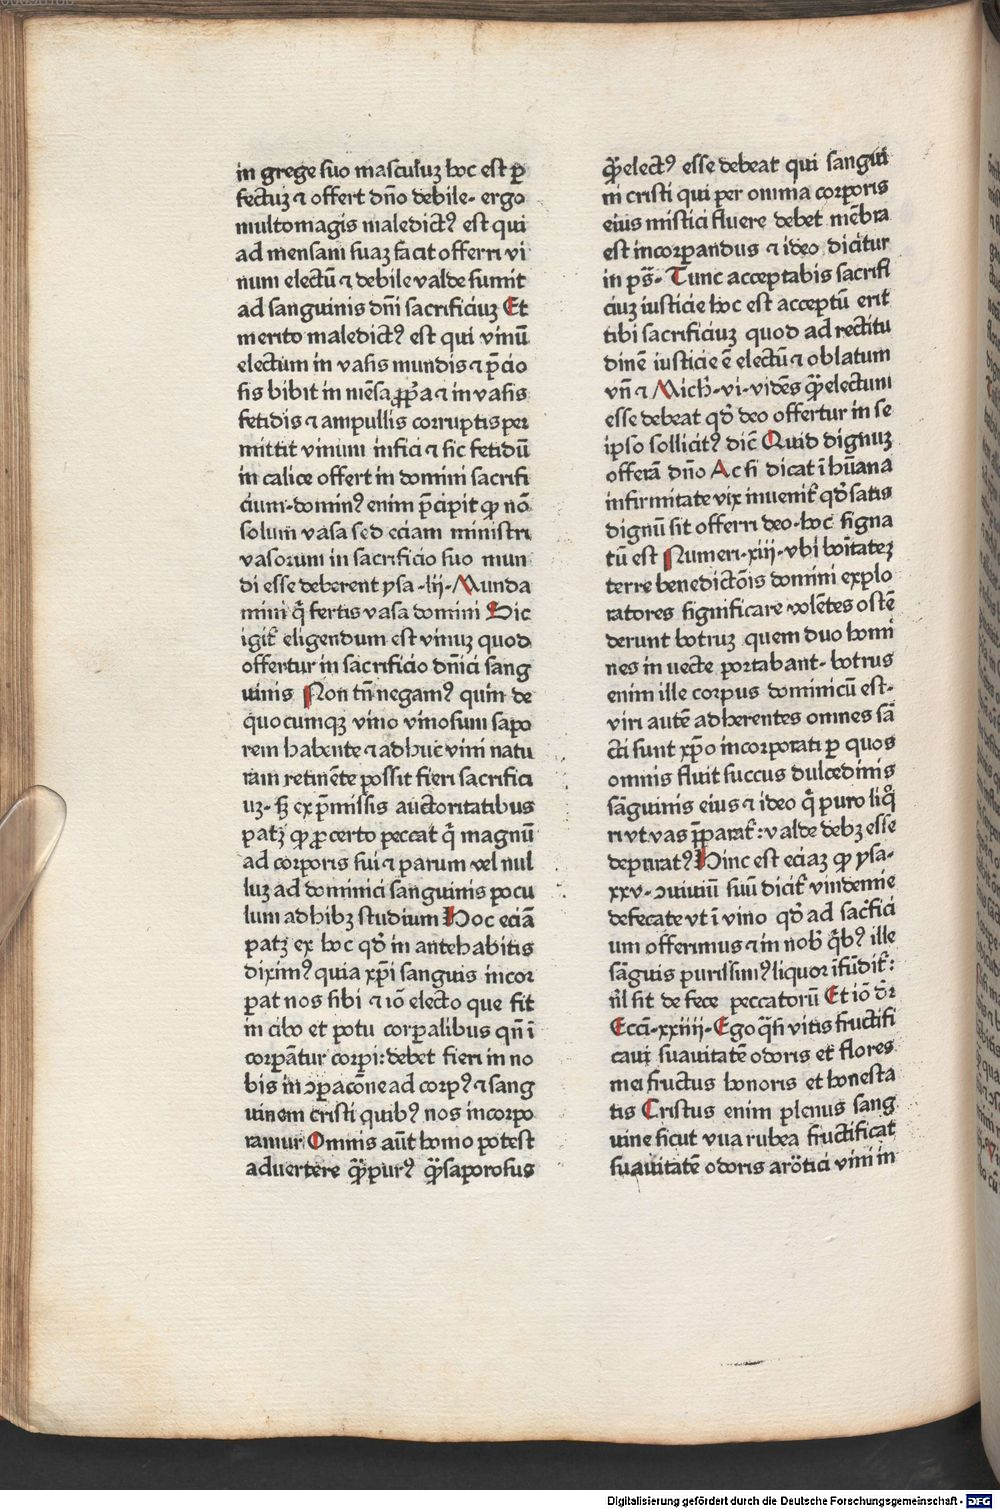 in grege suo masculuʒ hoc est ꝑ
fectuʒ ⁊ offert dn̄o debile· ergo
multomagis maledictꝰ est qui
ad mensam suaʒ facit offerri vi
num electū ⁊ debile valde sumit
ad sanguinis dn̄i sacrificiuʒ Et
merito maledictꝰ est qui vinū
electum in vasis mundis ⁊ p̄cio
sis bibit in mēsa ꝓpͥa ⁊ in vasis
fetidis ⁊ ampullis corruptis per
mittit vinum infici ⁊ sic fetidū
in calice offert in domini sacrifi
cium·dominꝰ enim p̄cipit ꝙ nō
solum vasa sed eciam ministri
vasorum in sacrificio suo mun
di esse deberent ysa ·lij· Munda
mini q̄ fertis vasa domini Sic
igit᷑ eligendum est vinuʒ quod
offertur in sacrificio dn̄ici sang
uinis Non tn̄ negamꝰ quin de
quocumqʒ vino vinosum sapo
rem habente ⁊ adhuc vini natu
ram retinēte possit fieri sacrifici
uʒ· sʒ ex p̄missis auctoritatibus
patʒ ꝙ ꝓcerto peccat q̄ magnū
ad corporis sui ⁊ parum vel nul
luʒ ad dominici sanguinis pocu
lum adhibʒ studium Hoc eciā
patʒ ex hoc qd̛ in antehabitis
diximꝰ quia xp̄i sanguis incor
ꝑat nos sibi ⁊ iō electo que fit
in cibo et potu corꝑalibus qn̄ ī
corꝑātur corꝑi: debet fieri in no
bis incorꝑacōne ad corpꝰ ⁊ sang
uinem cristi quibꝰ nos incorpo
ramur Omnis aūt homo potest
advertere ꝙ̄ purꝰ ꝙ̄ saporosus
ꝙ̄ electꝰ esse debeat qui sangui
ni cristi qui per omnia corporis
eius mistici fluere debet mēbra
est incorꝑandus ⁊ ideo dicitur
in ps̄· Tunc acceptabis sacrifi
ciuʒ iusticie hoc est acceptū erit
tibi sacrificiuʒ quod ad rectitu
dinē iusticie ē electū ⁊ oblatum
vn̄ ⁊ Mich·vi·vidēs ꝙ̄ electum
esse debeat qd̛ deo offertur in se
ipso sollicitꝰ dic̄ Quid dignuʒ
offerā dn̄o Ac si dicat ī hūana
infirmitate vix invenit᷑ qd̛ satis
dignū sit offerri deo·hoc signa
tū est Numeri·xiij·vbi bōitateʒ
terre benedictōis domini explo
ratores significare volētes ostē
derunt botruʒ quem duo homī
nes in uecte portabant· botrus
enim ille corpus dominicū est·
viri autē adherentes omnes sā
cti sunt xp̄o incorporati ꝑ quos
omnis fluit succus dulcedinis
sāguinis eius ⁊ ideo q̄ puro liq̛
ri vt vas p̄parat᷑: valde debʒ esse
depuratꝰ Hinc est eciaʒ ꝙ ysa·
xxv·ꝯuiuiū suū dicit᷑ vindemie
defecate vt ī vino qd̛ ad sac̛fici
um offerimus ⁊ in nob̛ q̛bꝰ ille
sāguis purissimꝰ liquor īfūdit᷑:
nl̄ sit de fece peccatorū Et iō dr̄
Ecci·xxiiij·Ego q̄si vitis fructifi
caui suauitatē odoris et flores
mei fructus honoris et honesta
tis Cristus enim plenus sang
uine sicut vua rubea fructificat
suauitatē odoris arōtici vini in
Digitalisierung gefördert durch die Deutsche Forschungsgemeinschaft - DFG